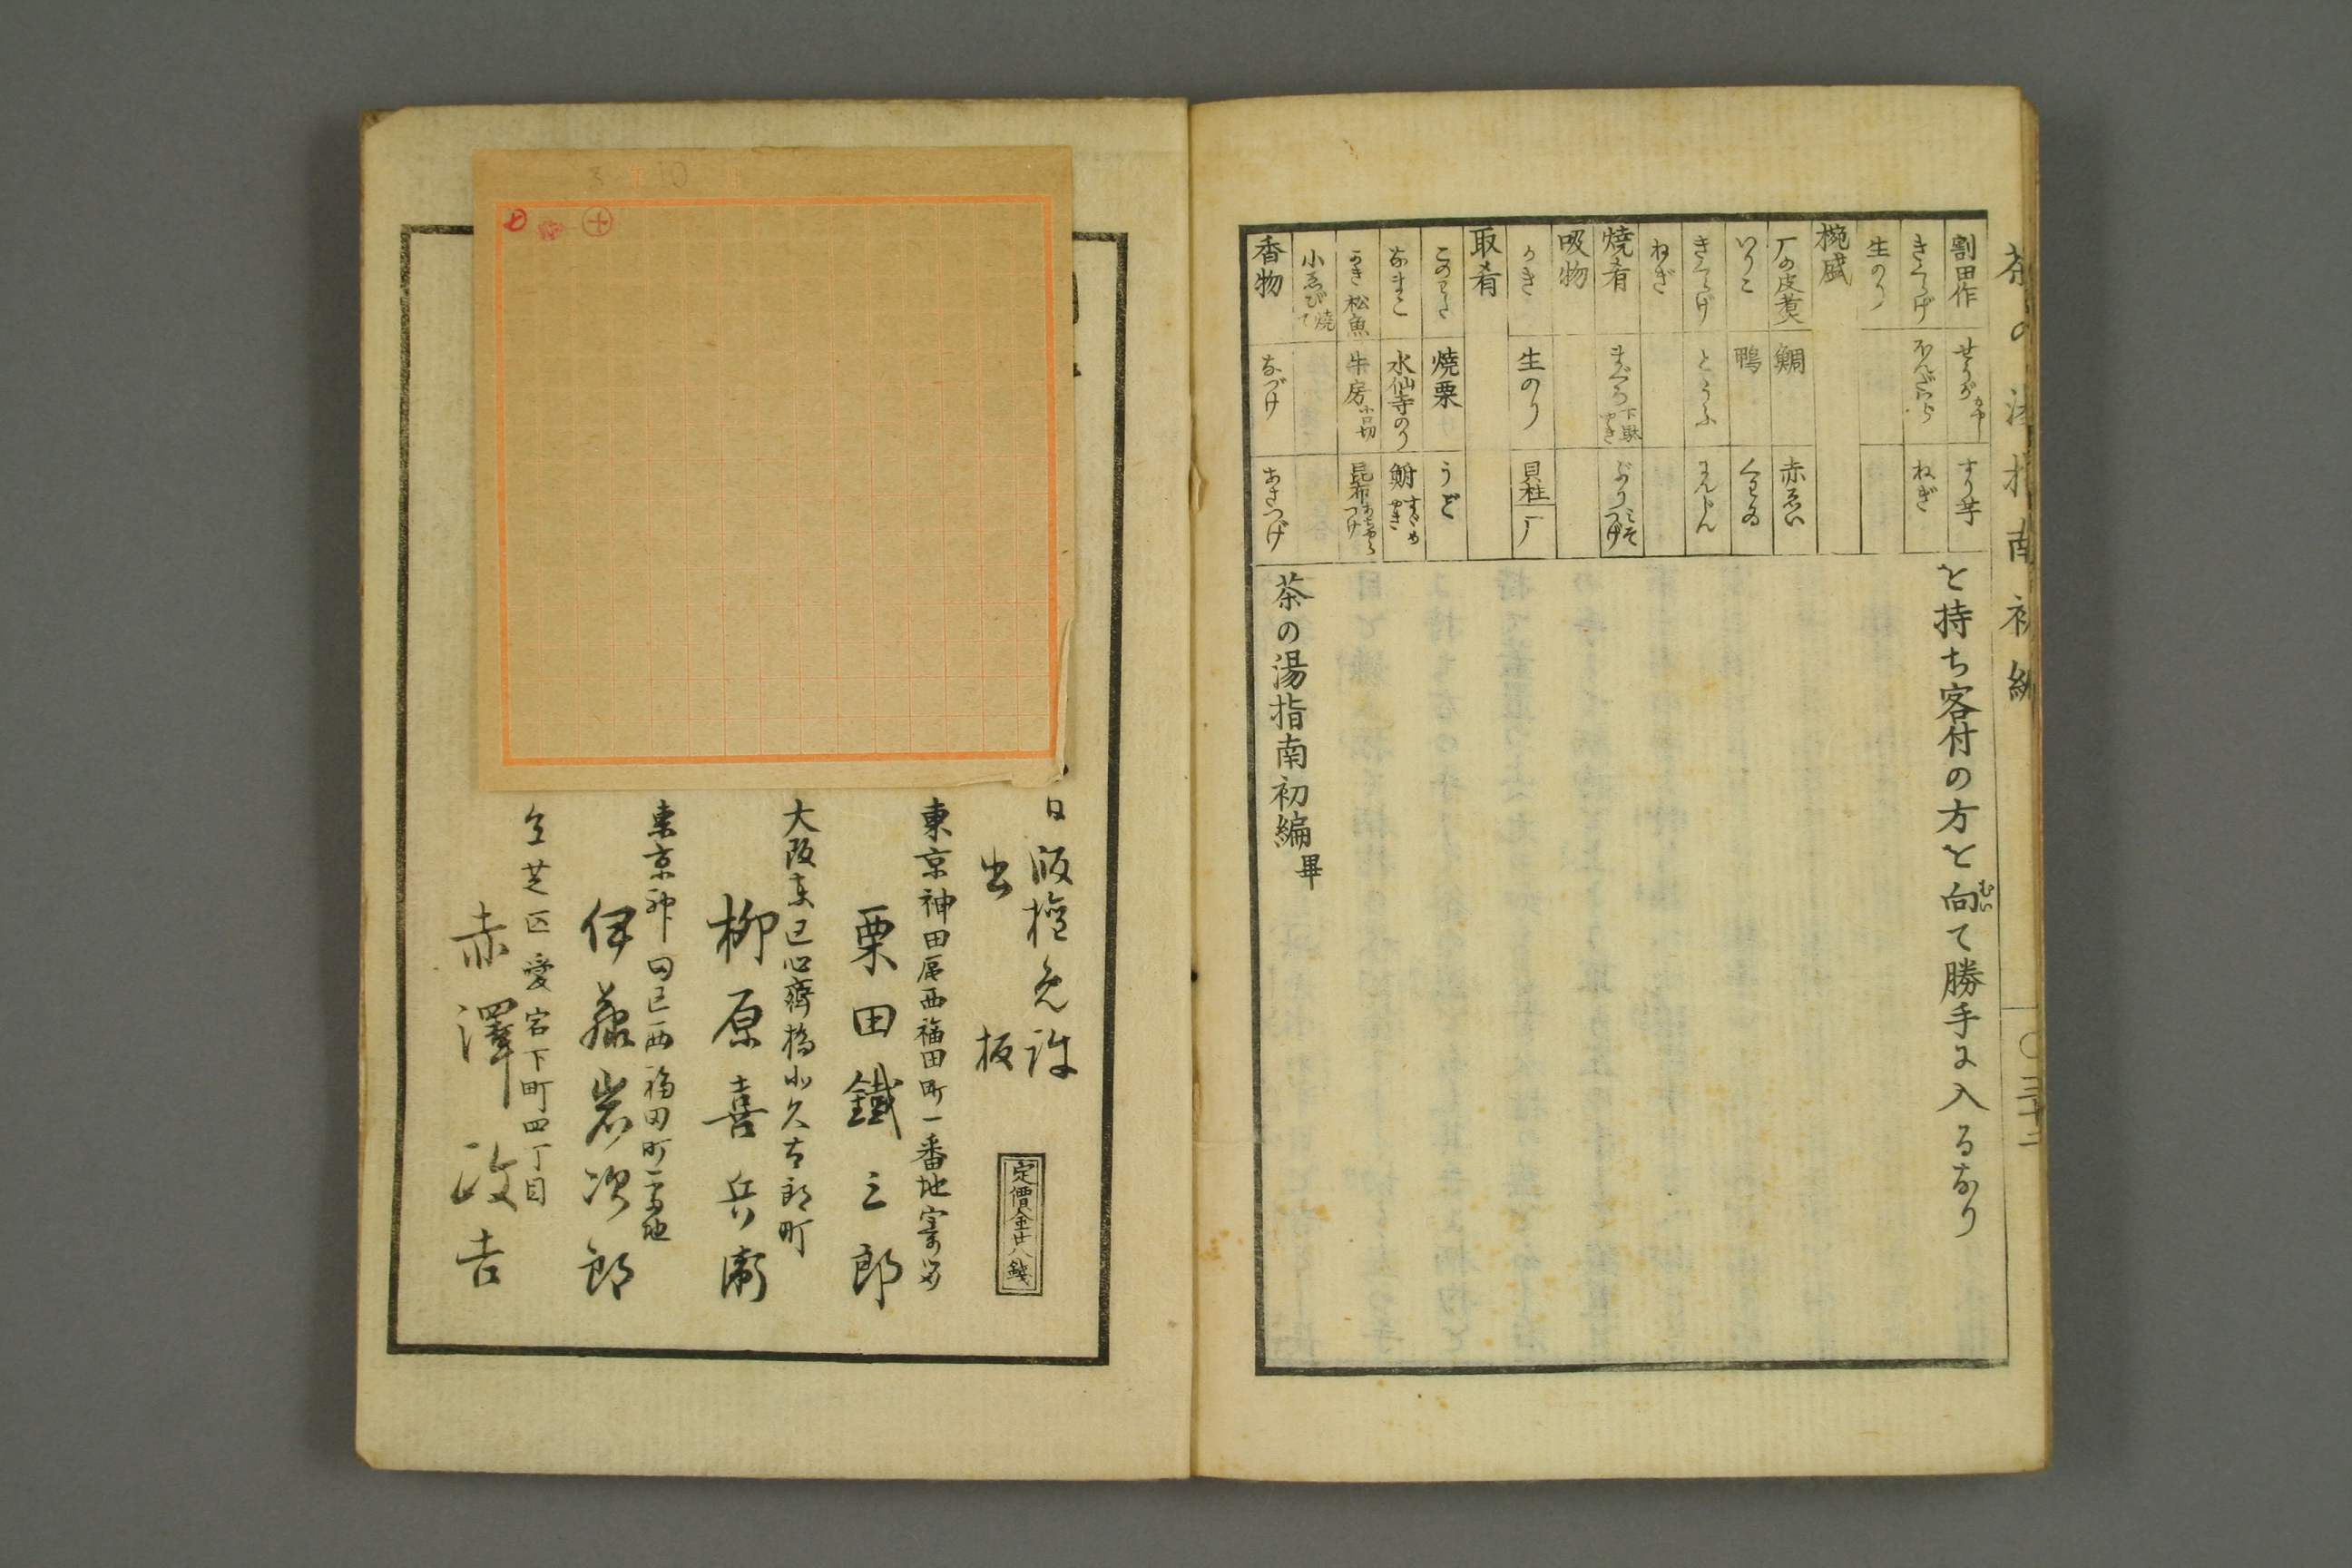 茶の湯指南初編
〇三十二
割田作
せうが
すり芋
きくらげ
ねぎ
生のり
椀盛
鴈の皮煮
鯛
赤ゑい
いりこ
鴨
くわゐ
きくらげ
とうふ
にんじん
ねぎ
焼肴
まぐろ
下駄やき
ぶり
みそつけ
吸物
かき
生のり
貝柱
取肴
このわた
焼栗
うど
なまこ
水仙寺のり
鮒すゞめやき
うき
松魚
牛房
小口切
昆布
小ゑび
焼て
香物
なづけ
あさつけ
を持ち客付の方を向て勝手に入るなり
むい
茶の湯指南初編畢
日版権免許
出板
定價金廿八銭
東京神田区西福田町一番地寄留
栗田鐵三郎
大阪東区心齋橋北久太郎町
柳原喜兵衛
東京神田区西福田町一番地
伊藤岩次郎
仝芝区愛宕下町四丁目
赤澤政吉